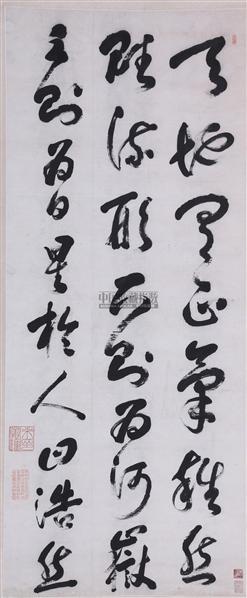 天地有正氣雜然
賦流形下則為河嶽
上則為日星於人曰浩然